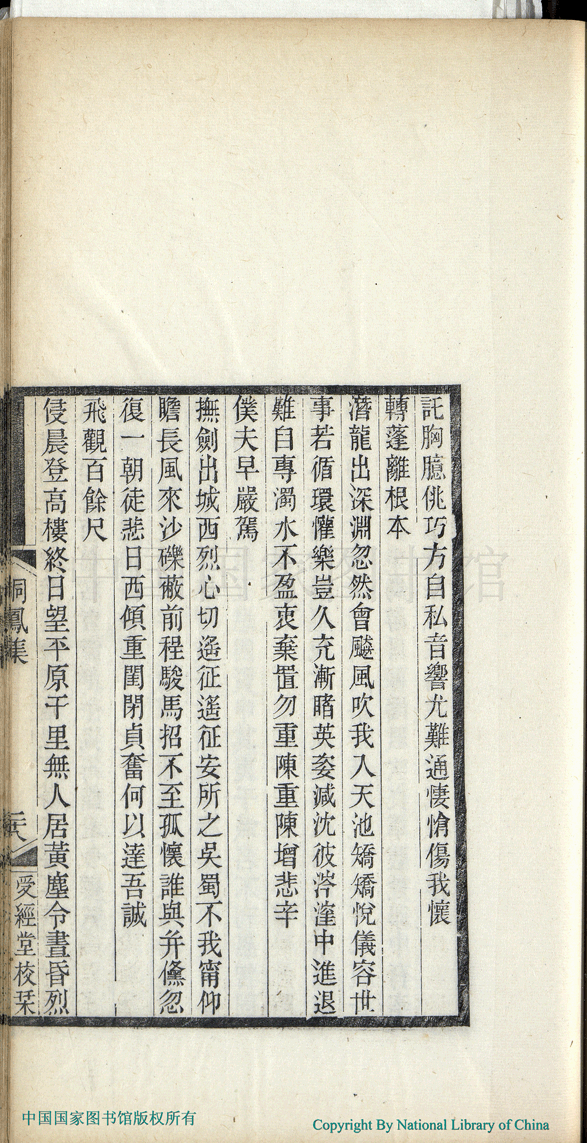 託胸臆佻巧方自私音響尤難通悽愴傷我懷
轉蓬離根本
潛龍出深淵忽然曾飈風吹我入天池矯矯悅儀容世
事若循環懽樂豈久充漸睹英姿減沈彼滄溟中進退
難自專濁水不盈衷棄置勿重陳重陳增悲辛
僕夫早嚴駕
撫劍出城西烈心切遙征遙征安所之吳蜀不我甯仰
瞻長風來沙礫蔽前程駿馬招不至孤懷誰與并儵忽
復一朝徒悲日西傾重閨閉貞奮何以達吾誠
飛觀百餘尺
侵晨登高樓終日望平原千里無人居黃塵令晝昏烈
桐鳳集
愛經堂校栞
中国国家图书馆
中国国家图书馆版权所有
Copyright By National Library of China